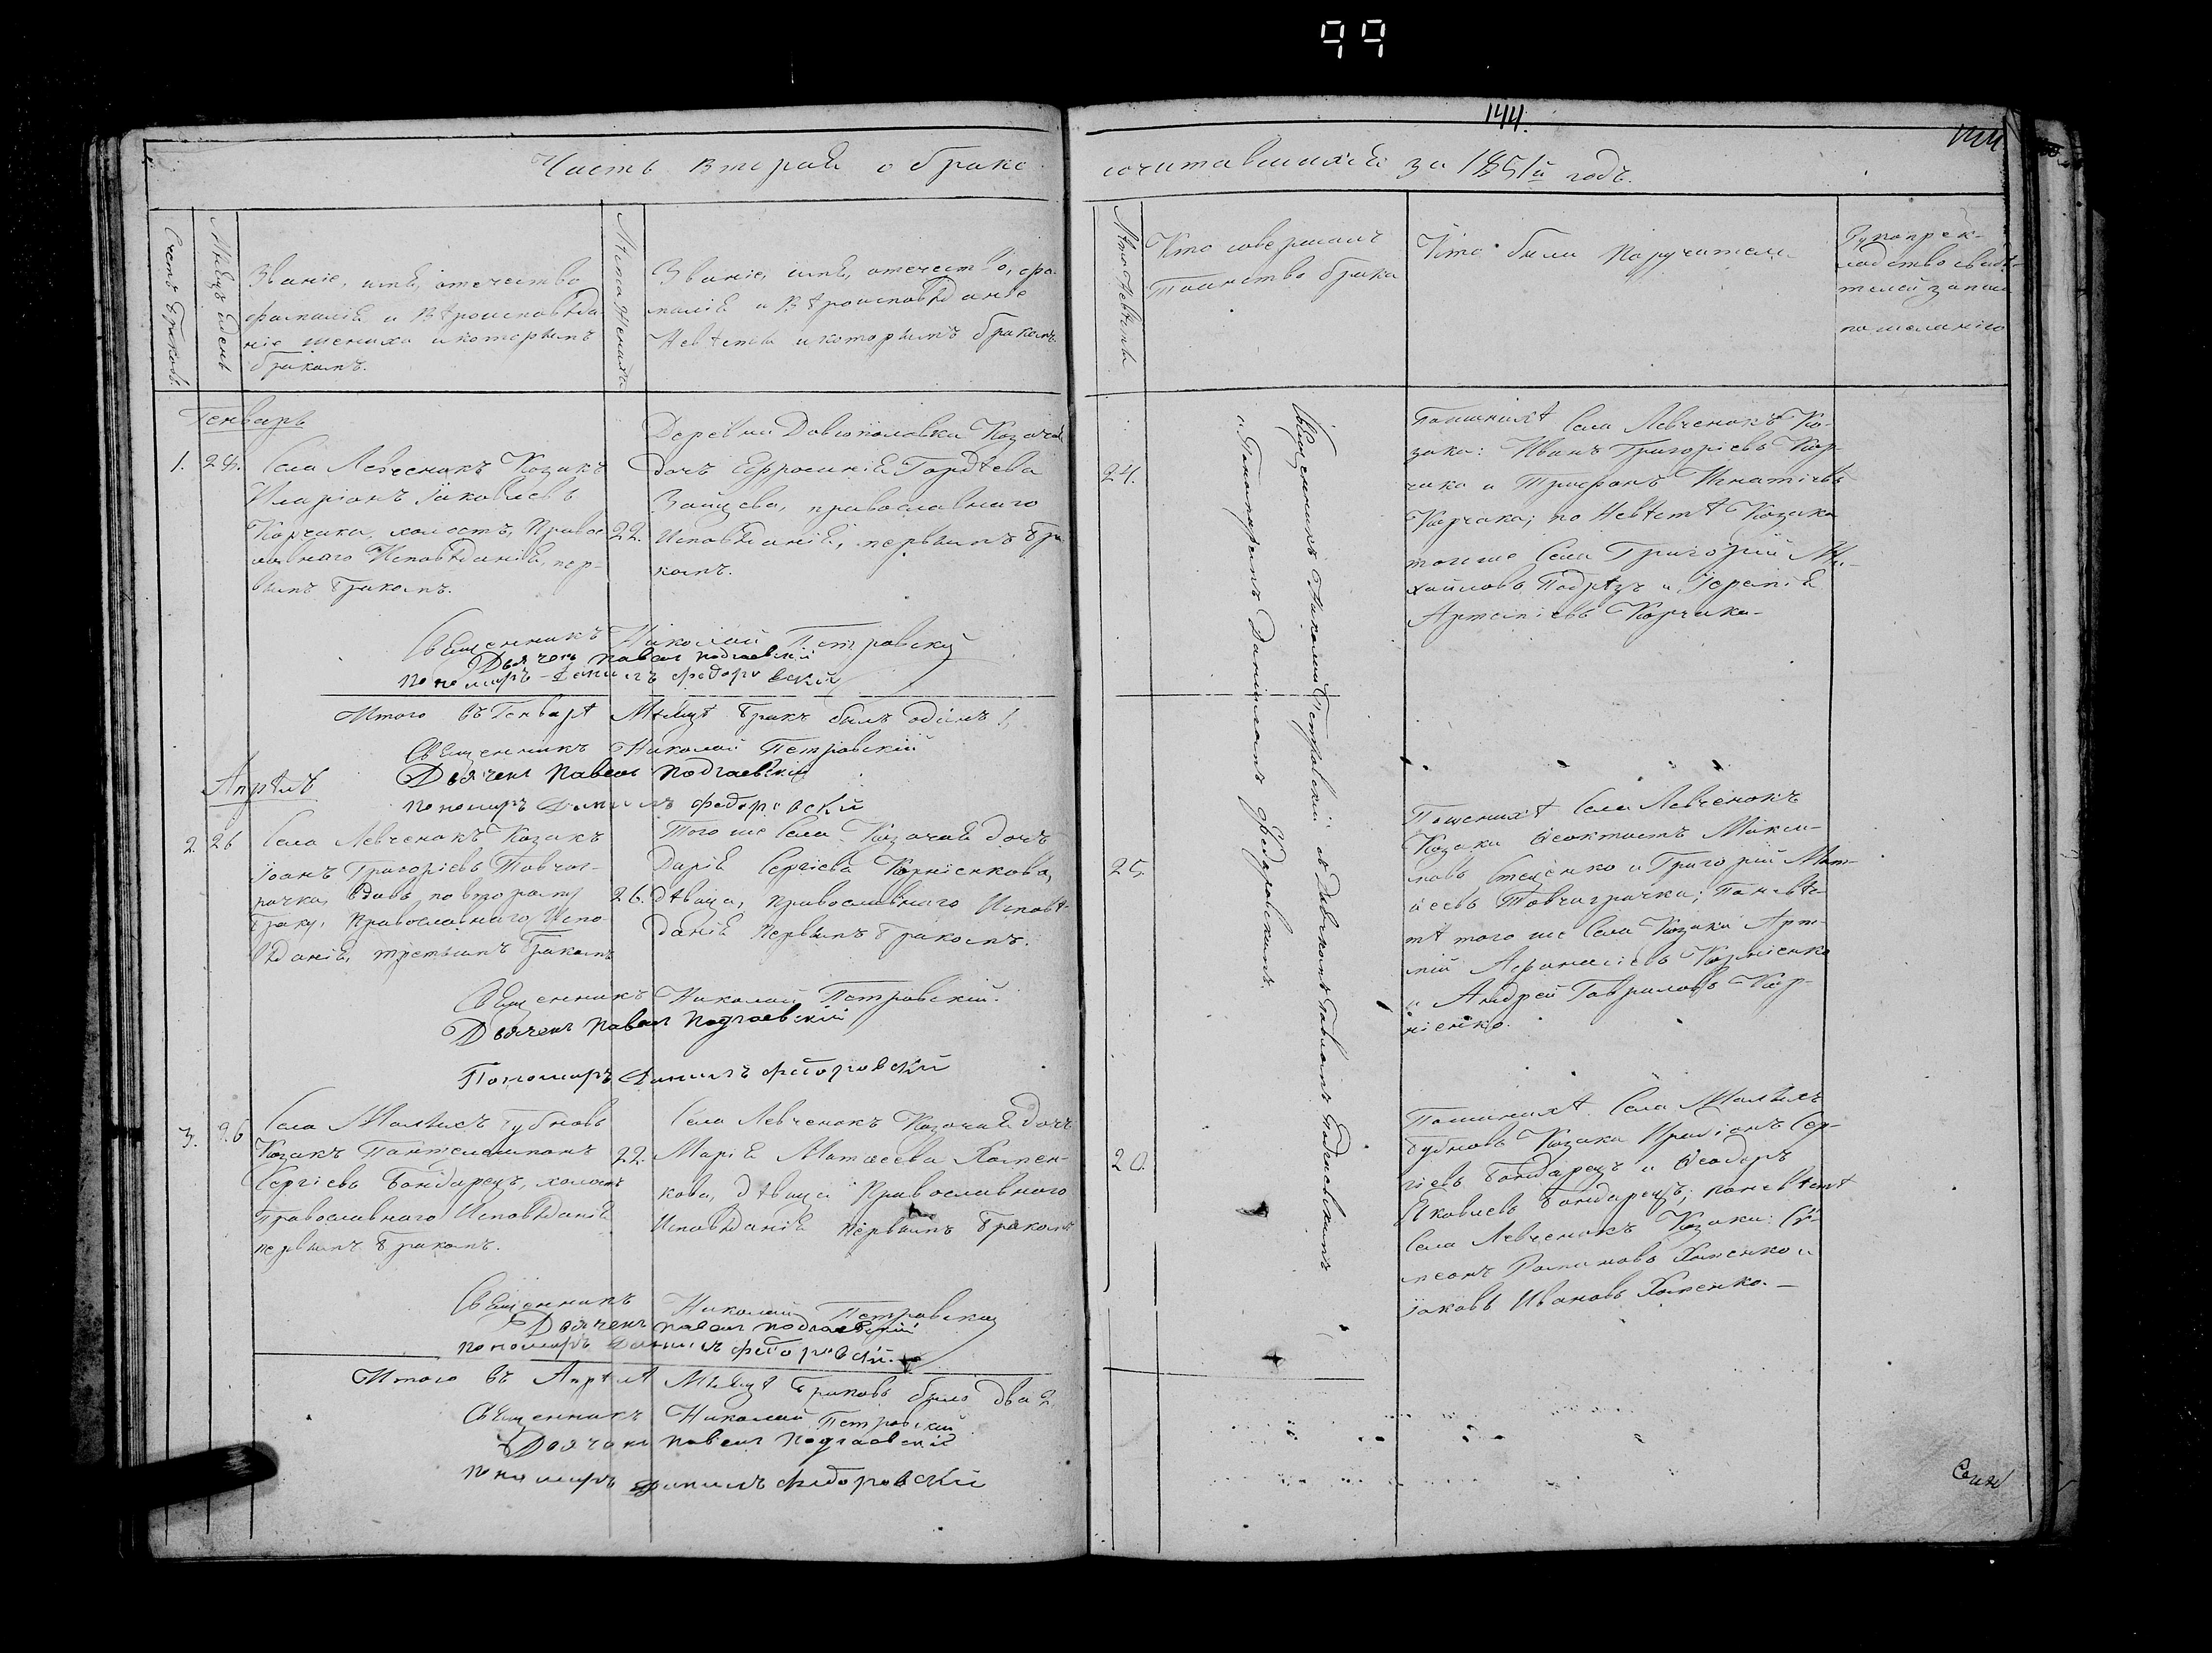 99
144.
144
Часть вторая о брако
сочитавшихся за 1851й годъ.
Счетъ браковъ.
Мѣсяцъ и день
Званіе, имя, отечество
фамилія и вѣроисповѣда
ніе жениха и которымъ
бракомъ.
Лѣта жениха
Званіе, имя, отечество, фа-
милія и вѣроисповѣданіе
Невѣсты и которымъ бракомъ
Лѣта Невѣсты
Кто совершалъ
Таинство брака
Кто были Поручители
Рукоприк-
ладство свидѣ-
телей записи
по желанію
Генварь
1. 24.
Села Левченокъ Козакъ
Иларіонъ Іаковлевъ
Корчака, холостъ, Право
славнаго Исповѣданія, пер-
вымъ бракомъ.
22.
Деревни Довгополовки Козачая
дочь Ефросинія Гордѣева
Зайцева, православнаго
Исповѣданія, первымъ бра
комъ.
24.
Священникъ Николай Петровскій съ Дьячкомъ Павломъ Подгаевскимъ
и Пономаремъ Даніиломъ Федоровскимъ.
По женихѣ Села Левченокъ Ко-
заки: Иванъ Григоріевъ Кор-
чака и Трифонъ Игнатіевъ
Корчака; по Невѣстѣ Козаки
того же Села Григорій Ми-
хайловъ Подрѣзъ и Іеремія
Артеміевъ Корчака-
Священникъ Николай Петровскій
Дьячекъ Павелъ Подгаевскій
Пономарь Данилъ Федоровскій
Итого въ Генварѣ Мѣсяцѣ бракъ былъ одинъ 1,
Священникъ Николай Петровскій
Дьячекъ Павелъ Подгаевскій
Пономарь Данилъ Федоровскій
Апрѣль
2. 26
Села Левченокъ Козакъ
Іоанъ Григоріевъ Товчиг-
рачка, вдовъ по второму
браку, Православнаго Испо-
вѣданія, третьимъ бракомъ
26.
Того же Села Козачая дочь
Дарія Сергіева Корніенкова,
дѣвица, православнаго Исповѣ-
данія первымъ бракомъ.
25.
По женихѣ Села Левченокъ
Козаки Ѳеоктистъ Макси-
мовъ Стеценко и Григорій Мат-
ѳеевъ Товчиграчка; По невѣс-
тѣ того же Села Козаки Арте-
мій Афанасіевъ Корніенко
и Андрей Гавриловъ Кор-
ніенко.
Священникъ Николай Петровскій.
Дьячекъ Павелъ Подгаевскій
Пономарь Данилъ Федоровскій
3. 26
Села Малыхъ Бубновъ
Козакъ Пантелеимонъ
Сергіевъ Бондарецъ, холостъ
Православнаго Исповѣданія
первымъ бракомъ.
22.
Села Левченокъ Козачая дочь
Марія Матѳеева Хоменкова,
дѣвица Православнаго
Исповѣданія первымъ бракомъ
20.
По женихѣ Села Малыхъ
Бубновъ Козаки Сер-
гіевъ Бондарецъ и Ѳеодоръ
Яковлевъ Бондарецъ; по невѣстѣ
Села Левченокъ Козаки: Си-
меонъ Романовъ Хоменко и
Іаковъ Ивановъ Хоменко.-
Священникъ Николай Петровскій
Дьячекъ Павелъ Подгаевскій
Пономарь Данилъ Федоровскій.
Итого въ Апрѣлѣ Мѣсяцѣ браковъ было два 2.
Священникъ Николай Петровскій
Дьячекъ Павелъ Подгаевскій
Пономарь Данилъ Федоровскій